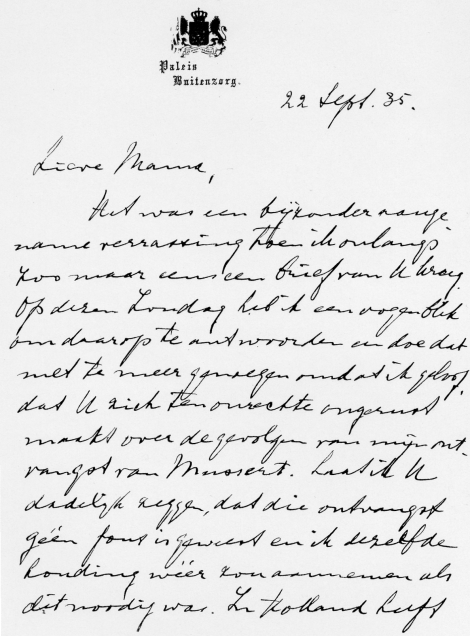 Paleis
Buitenzorg.
22 Sept. 35.
Lieve Mama,
Het was een bijzonder aange
name verrassing toen ik onlangs
zoo maar eens een brief van U kreeg.
Op dezen Zondag heb ik een oogenblik
om daarop te antwoorden en doe dat
met te meer genoegen omdat ik geloof,
dat U zich ten onrechte ongerust
maakt over de gevolgen van mijn ont-
vangst van Mussert. Laat ik U
dadelijk zeggen, dat die ontvangst
géén fout is geweest en ik dezelfde
houding wéér zou aannemen als
dit noodig was. In Holland heeft